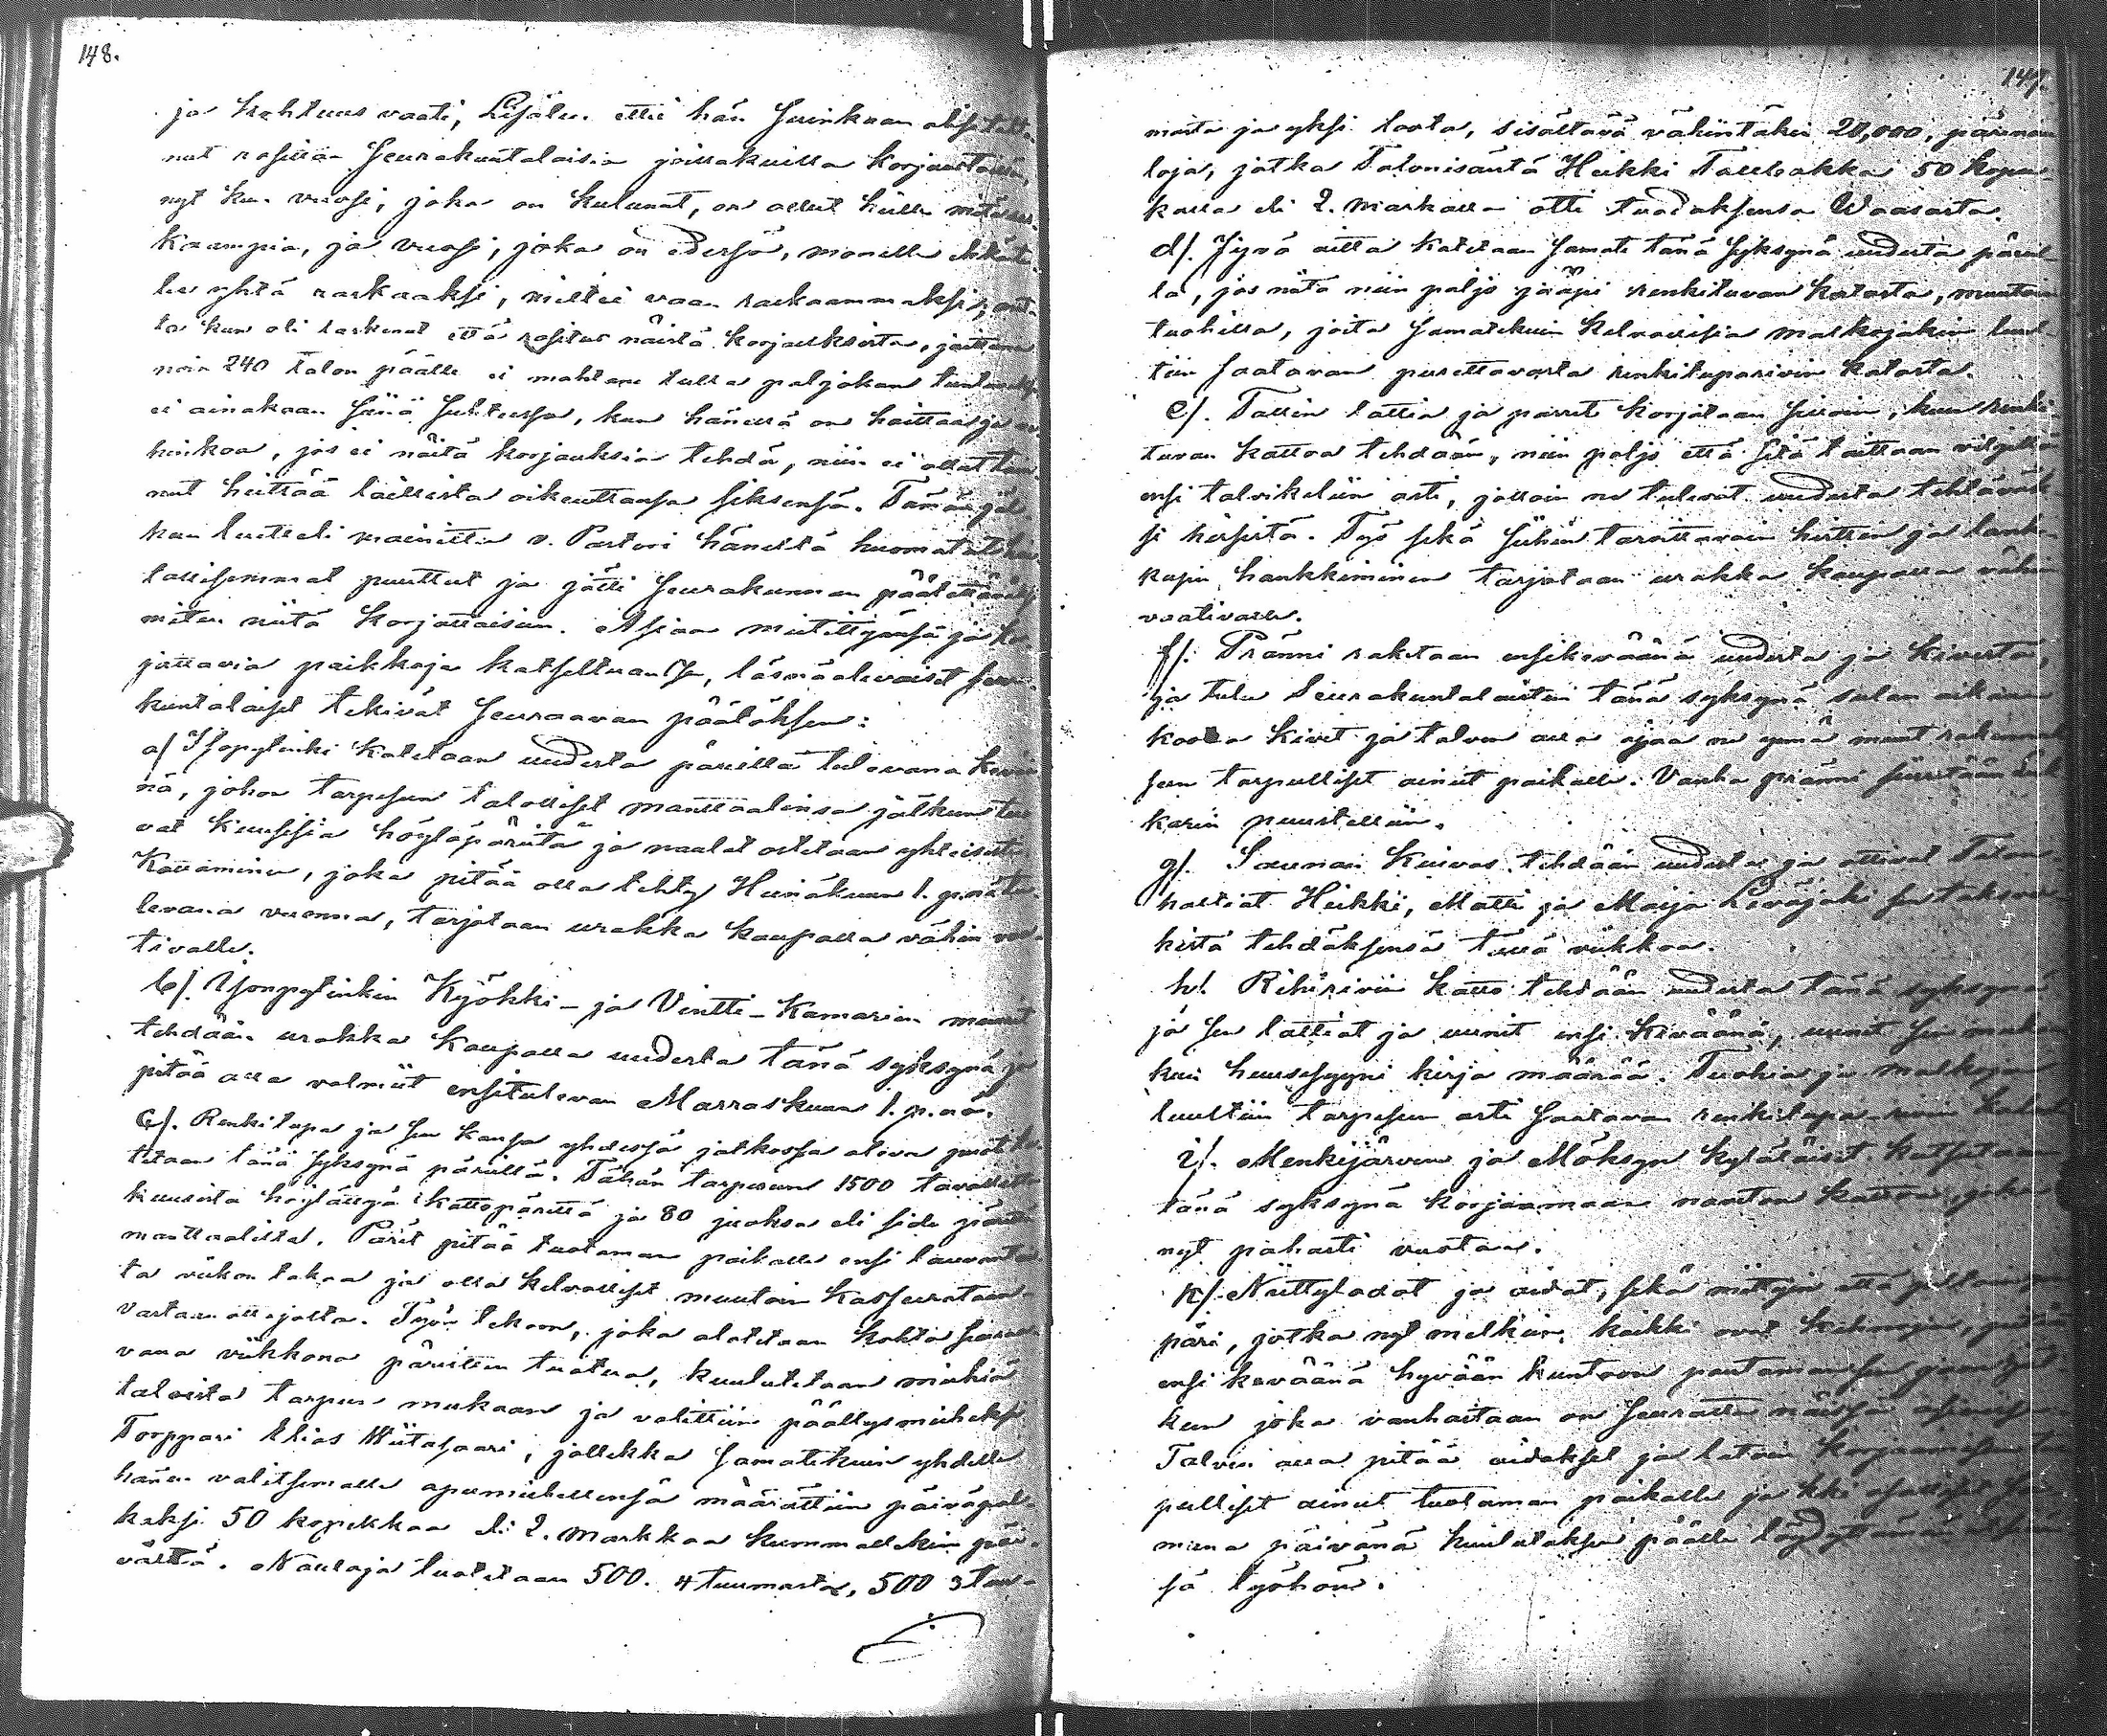 148.
ja kohtuus vaati, Lisäten ettei hän suinkaan ahsitellut
nut rasittaa Seurakuntalaisia joillakuilla korjauksilla,
nyt kun vuosi, joka on kulunut, on ollut heille
kaampia, ja vuosi, joka on edessä, monelle
lee yhtä raskaaksi, melkei vaan raskaammaksi, mut-
ta kun oli laskenut että rasitus näistä korjauksista, jaettuna
noin 240 talon päälle ei mahtane tulla paljokaan tuntuvaksi
ei ainakaan siinä suhteessa, kun hänessä on haittaa ja va-
hinkoa, jos ei näitä korjauksia tehdä, niin ei ollut
nut heittää laillista oikeuttansa siksensä. Tämän jäl-
keen luetteli mainittu v. Pastori häneltä huomatut
tallisemmat puuttut ja jätti Seurakunnan päätettäväksi
miten niitä korjattaisiin. Asiaa mietittyänsä ja kor-
jattavia paikkoja katseltuansa, läsnäolevaiset seura-
kuntalaiset tekivät seuraavan päätöksen:
a). Isopytinki katetaan uudesta päreillä tulevana kevä-
nä, johon tarpeseen talolliset manttaalinsa jälkeen tuo-
vat kuusisia höyläpäreitä ja naulat ostetaan yhteisesti.
Kattaminen, joka pitää olla tehty Heinäkuun 1. p:nä tu-
levana vuonna, tarjotaan urakka kaupalla vähin vaa-
tivalle.
b). Isonpytinkin Kyökki- ja Vintti-Kamarin muurit
tehdään urakka kaupalla uudesta tänä syksynä ja
pitää olla valmiit ensitulevan Marraskuun 1. p:nä.
c). Renkitupa ja sen kanssa yhdessä jatkossa oleva puoti ka-
tetaan tänä syksynä päreillä. Tähän tarpeseen 1500 tavallista
kuusista höylättyä kattopärettä ja 80 juoksua eli side pärettä
manttaalista. Päret pitää tuotaman paikalle ensi lauvanta-
ta viikon takaa ja olla kelvolliset muutoin kasseerataan
vastaan ottajalta. Työn tekoon, joka alotetaan kohta seuraa-
vana viikkona päreitten tuotua, kuulutetaan miehiä
taloista tarpeen mukaan ja valittiin päällysmieheksi
Torppari Elias Wiitasaari, jollekka samatekuin yhdelle
hänen valitsemalle apumiehellensä määrättiin päiväpal-
kaksi 50 kopekkaa eli 2. markkaa kummallekin päi-
vältä. Nauloja tuotetaan 500. 4 tuumasta, 500 3 tuu-
149.
masta ja yksi loota, sisältävä vähintäkin 20,000, pärenau-
loja, jotka Talonisäntä Heikki Takkakka 50 kope-
kalla eli 2. markalla otti tuodaksensa Waasasta.
d). Jyvä aitta katetaan samate tänä syksynä uudesta päreil-
lä, jos niitä niin paljo jääpi renkituvan katosta, muutoin
tuohilla, joita samatekuin kelvollisia malkojakin luul-
tiin saatavan purettavasta renkituparivin katosta.
e). Tallin lattia ja parret korjataan silloin, kun renki-
tuvan kattoa tehdään, niin paljo että sitä taittaan viljellä
ensi talvikeliin asti, jolloin ne tulevat uudesta tehtäväk-
si hirsistä. Työ sekä siihen tarvittavain hirttein ja lank-
kujen hankkiminen tarjotaan urakka kaupalla vähin
vaativalle.
f). Pränni raketaan ensikeväänä uudesta ja kivestä,
ja tulee Seurakuntalaisten tänä syksynä sulan aikana
koota kivet ja talven alla ajaa ne ynnä muut rakennuk-
seen tarpeelliset aineet paikalle. Vanha pränni siirretään
karin puustelliin.
g). Saunan kuivos tehdään uudesta ja ottivat Talon
haltiat Heikki, Matti ja Maija Leväjoki sen taksvär-
kistä tehdäksensä tällä viikkoa.
h). Rihirivin katto tehdään uudesta tänä syksynä
ja sen lattiat ja uunit ensi keväänä, uunit sen mukaan
kuin huusesyyni kirja määrää. Tuohia ja malkoja
luultiin tarpeseen asti saatavan renkitupa-rivin katosta
i). Menkijärven ja Möksyn kyläläiset katsotaan
tänä syksynä korjaamaan navetan kattoa, joka
nyt pahasti vuotaa.
k). Niittyladot ja aidat, sekä niittyin että peltoin ym-
päri, jotka nyt melkein kaikki ovat kehnoja, pitää
ensi keväänä hyvään kuntoon pantaman sen jaon jäl-
keen joka vanhastaan on seurattu näissä asioissa.
Talven alla pitää aidakset ja latoin korjauksen tar-
peelliset aineet tuotaman paikalle ja kki osalliset sa-
mana päivänä kuulutuksen päälle löydyttämän
sä työhön.